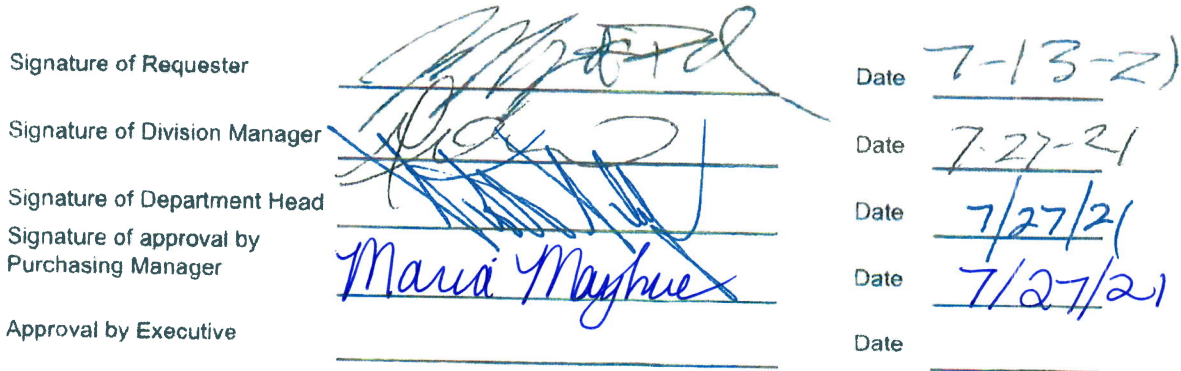 Signature of Requester Date 7-13-21
Signature of Division Manager Date 7-27-21
Signature of Department Head Date 7/27/21
Signature of approval by
Purchasing Manager Maria Mayhue Date 7/27/21
Approval by Executive Date